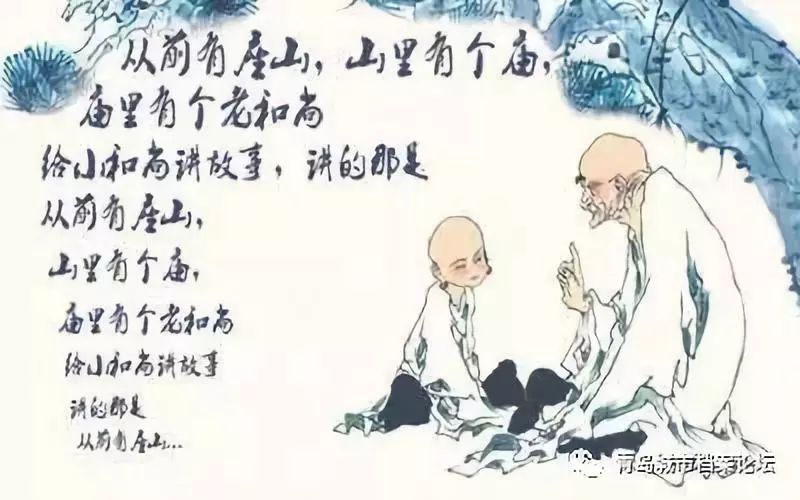 从前有座山，山里有个庙，
庙里有个老和尚
给小和尚讲故事，讲的那是
从前有座山，
山里有个庙，
庙里有个老和尚
给小和尚讲故事
讲的那是
从前有座山...
青岛城市档案论坛